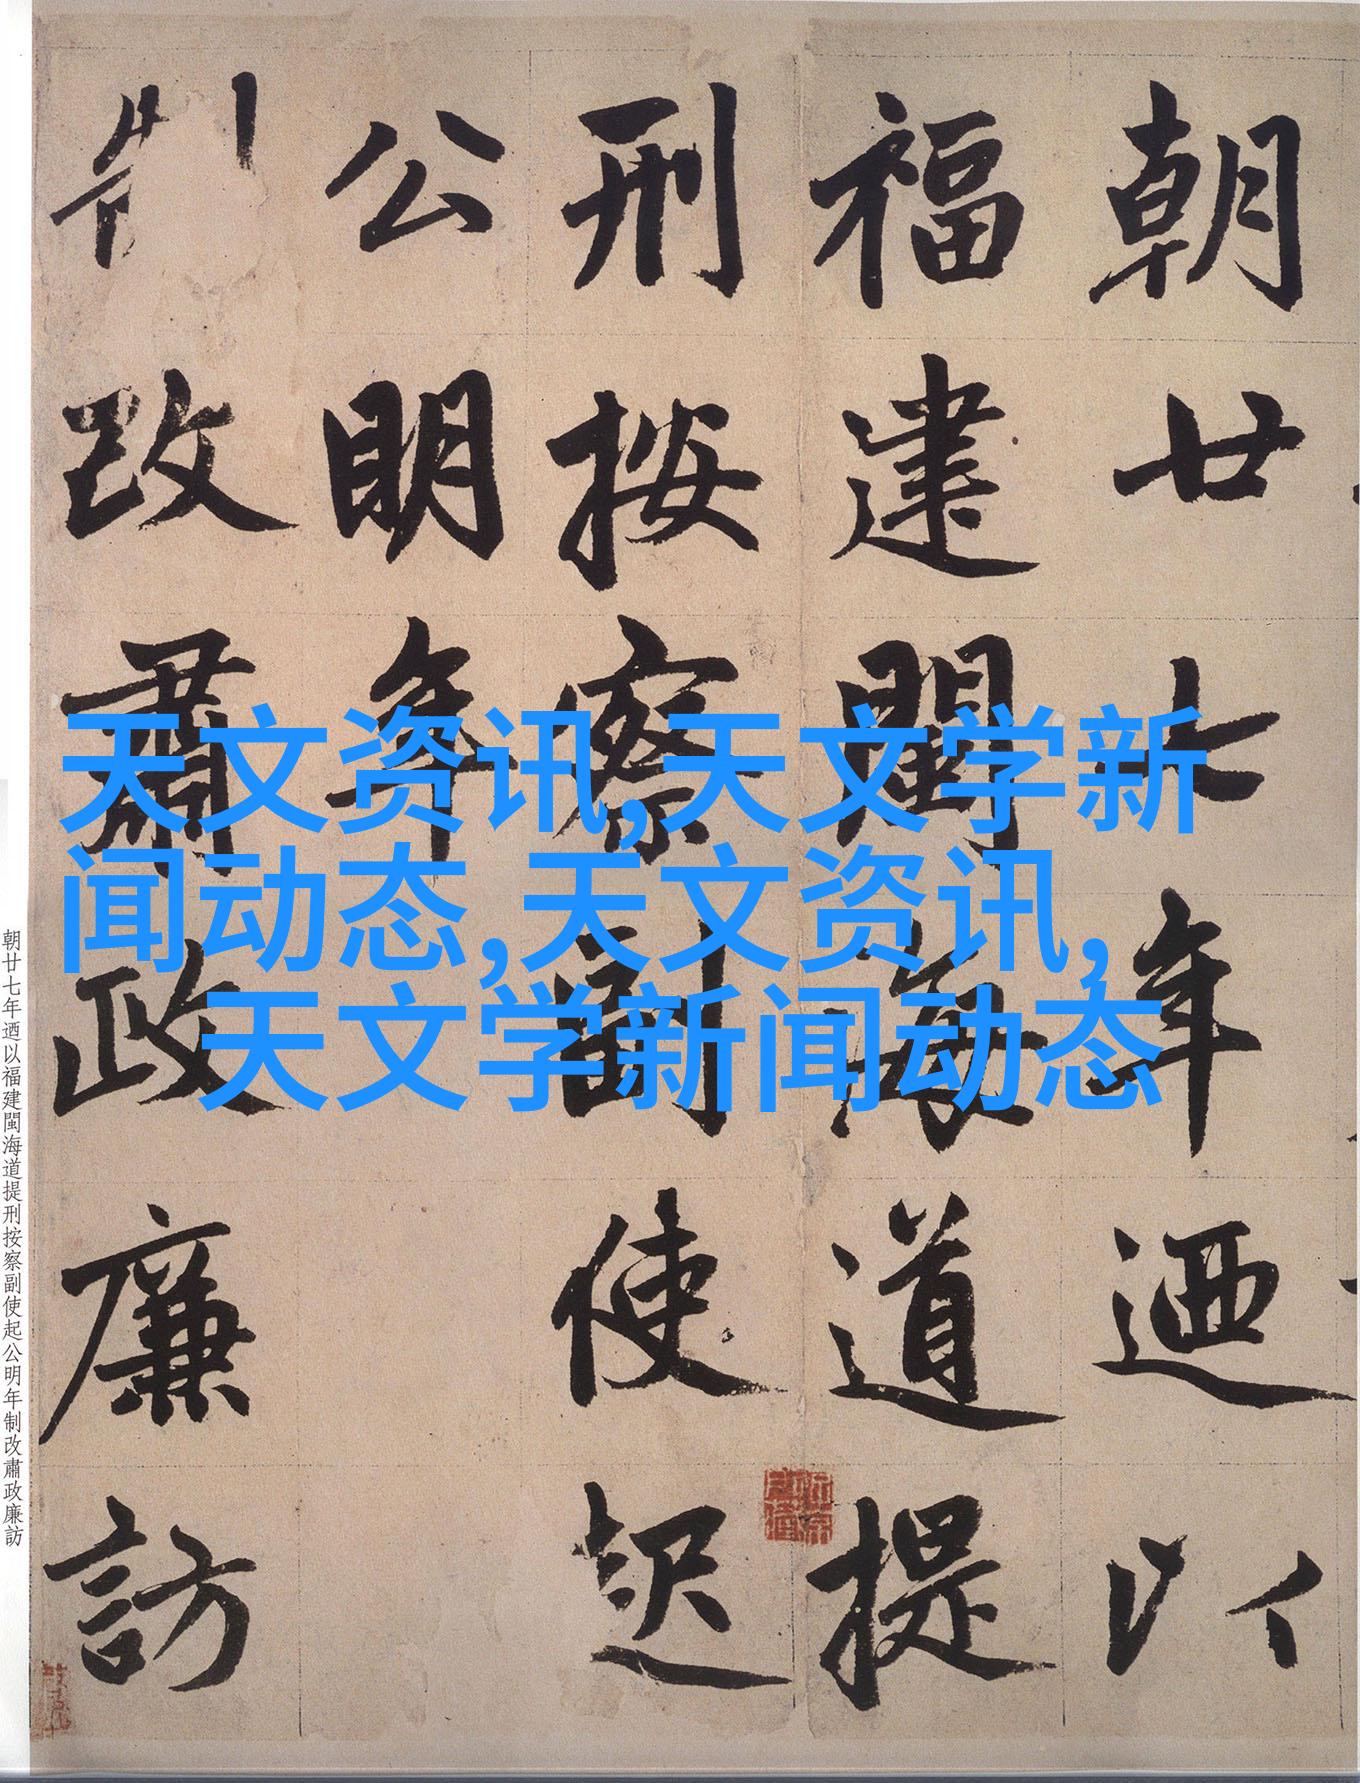 朝廿七年迺以
福建閩海道提
刑按察副使起
公明年
制改肅政廉訪
天文资讯,天文学新
闻动态,天文资讯,
天文学新闻动态
朝廿七年迺以福建閩海道提刑按察副使起公明年制改肅政廉訪